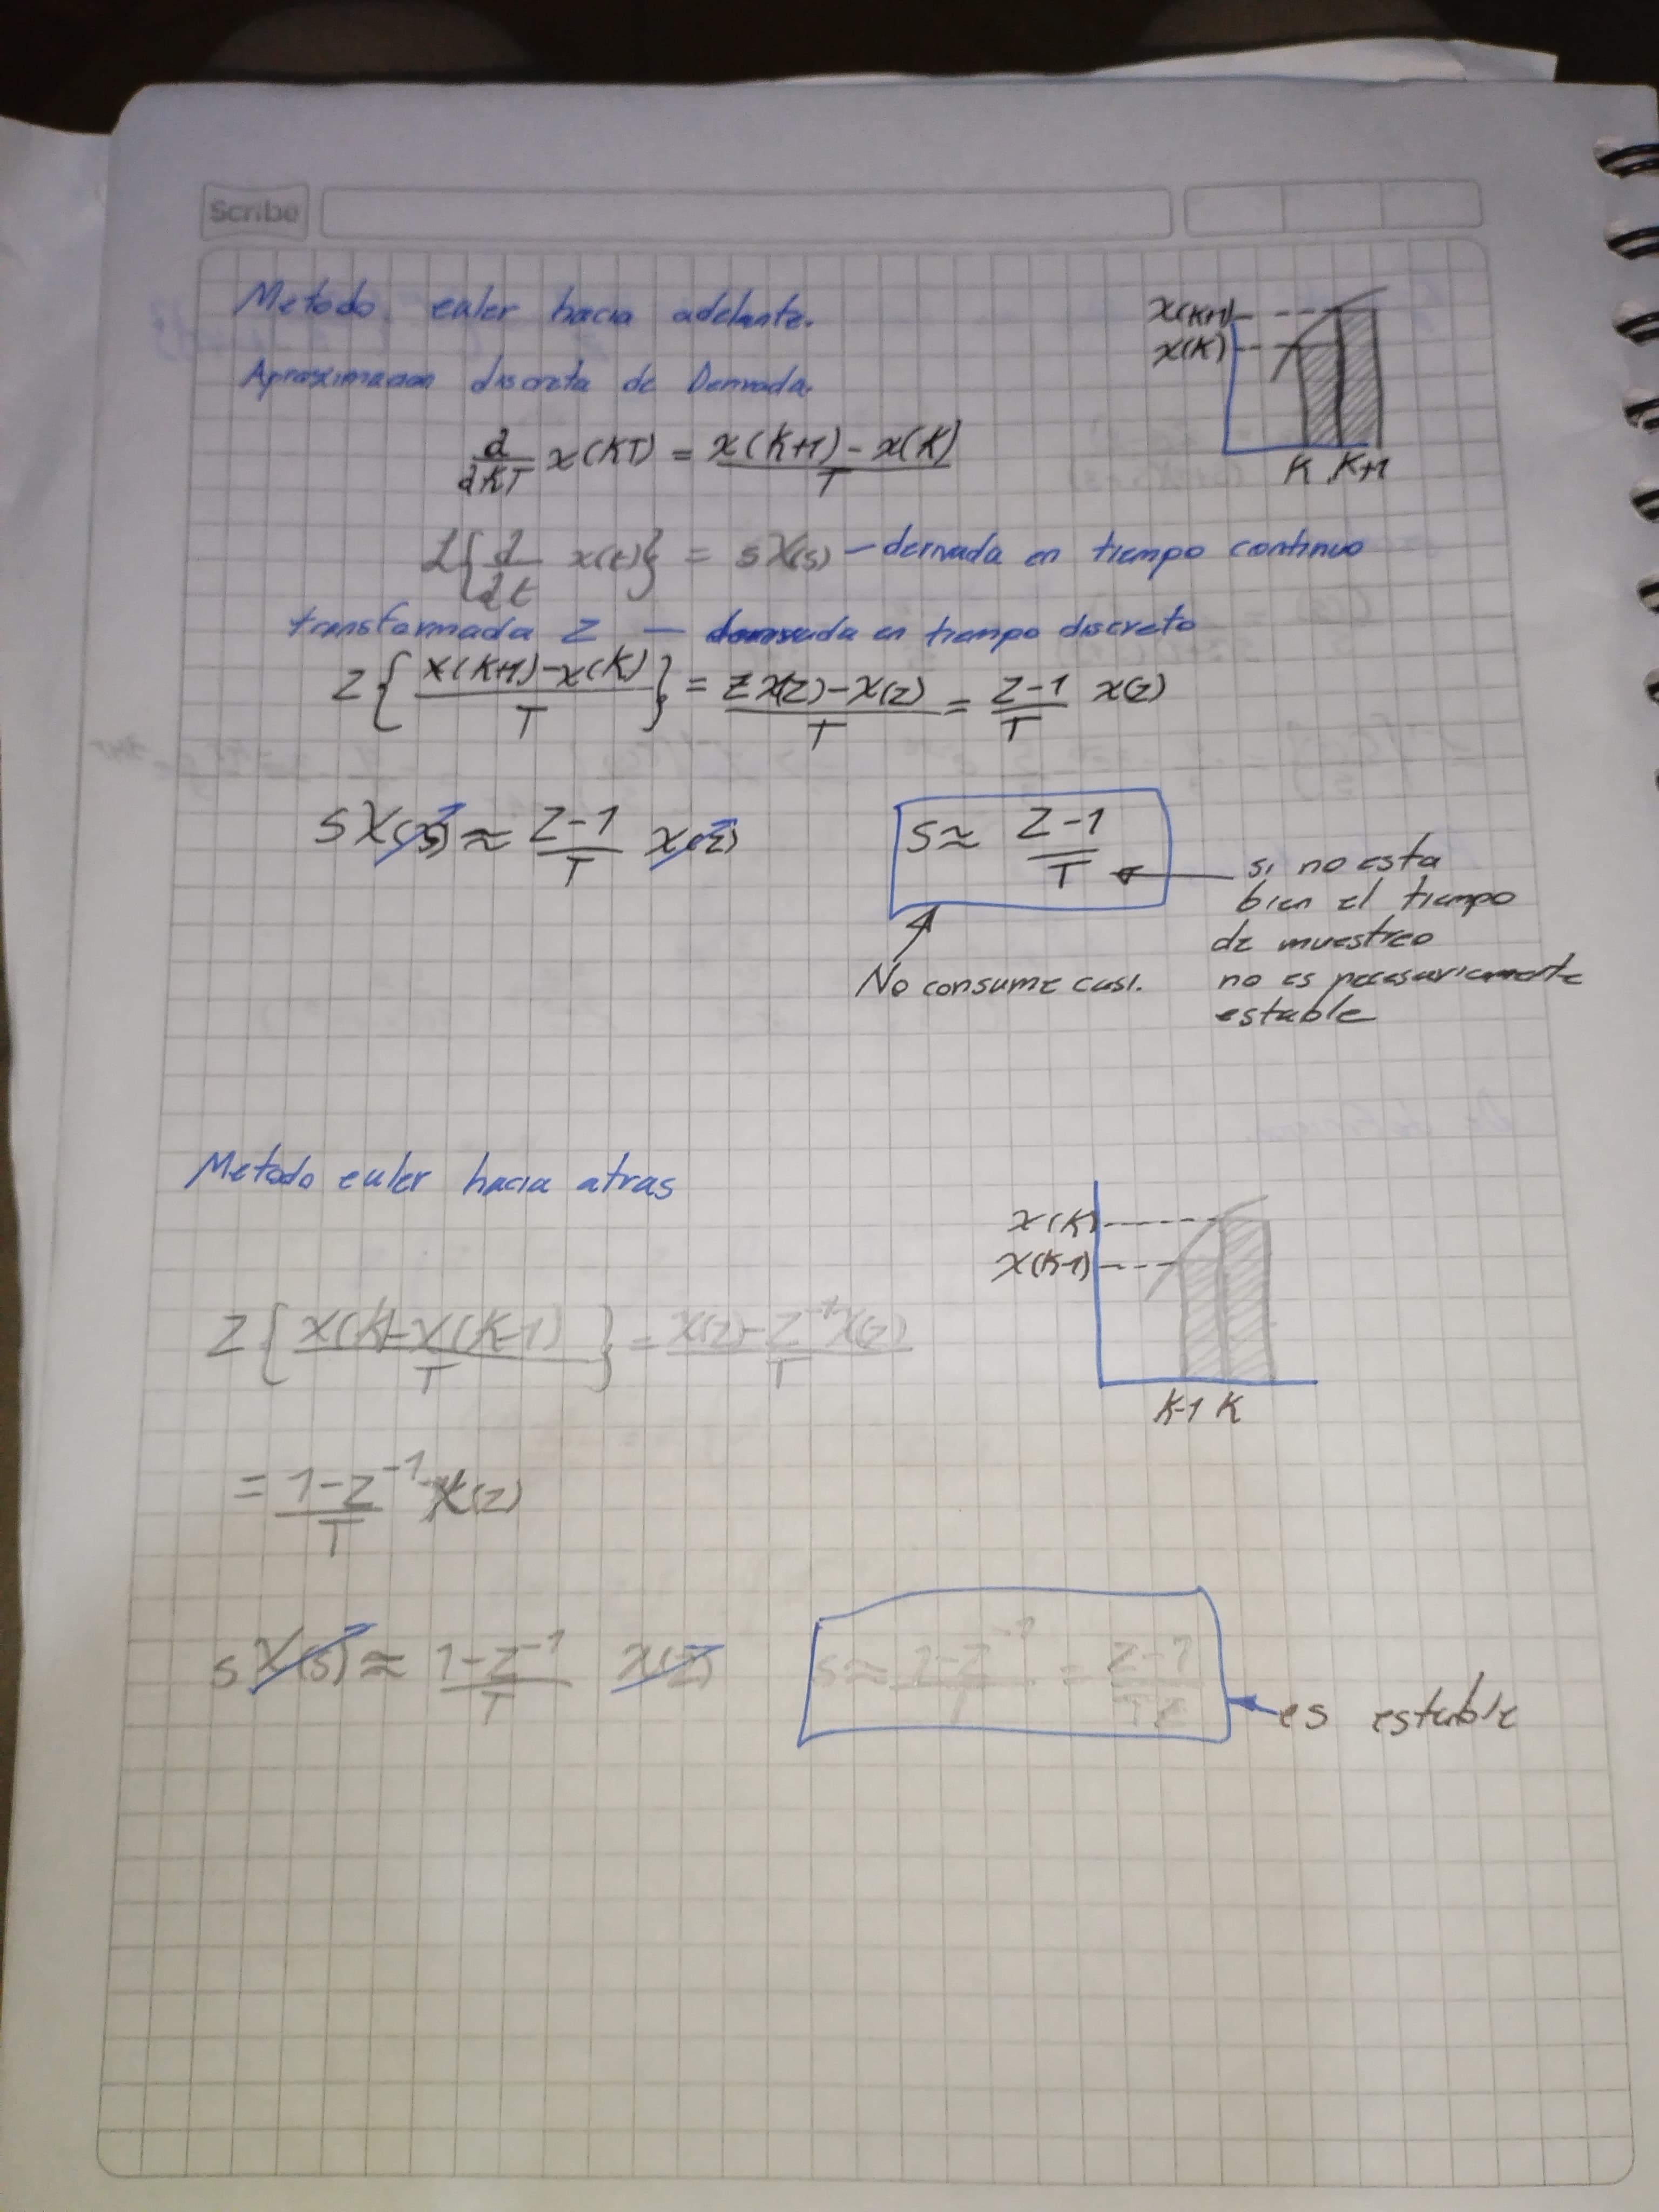 Scribe
Metodo euler hacia adelante.
Aproximacion discreta de Derivada.
x(K+1)
x(K)
K K+1
d/dKT x(KT) = (x(K+1) - x(K))/T
L{d/dt x(t)} = sX(s) — derivada en tiempo continuo
transformada Z — derivada en tiempo discreto
Z{(x(K+1)-x(K))/T} = (ZX(Z)-X(Z))/T = (Z-1)/T X(Z)
SX(s) ≈ (Z-1)/T X(Z)
S ≈ (Z-1)/T
si no esta
bien el tiempo
de muestreo
no es necesariamente
estable
No consume casi.
Metodo euler hacia atras
x(K)
x(K-1)
K-1 K
Z{(X(K)-X(K-1))/T} = (X(Z)-Z^-1X(Z))/T
= (1-Z^-1)/T X(Z)
sX(s) ≈ (1-Z^-1)/T X(Z)
s ≈ (1-Z^-1)/T = (Z-1)/TZ
es estable